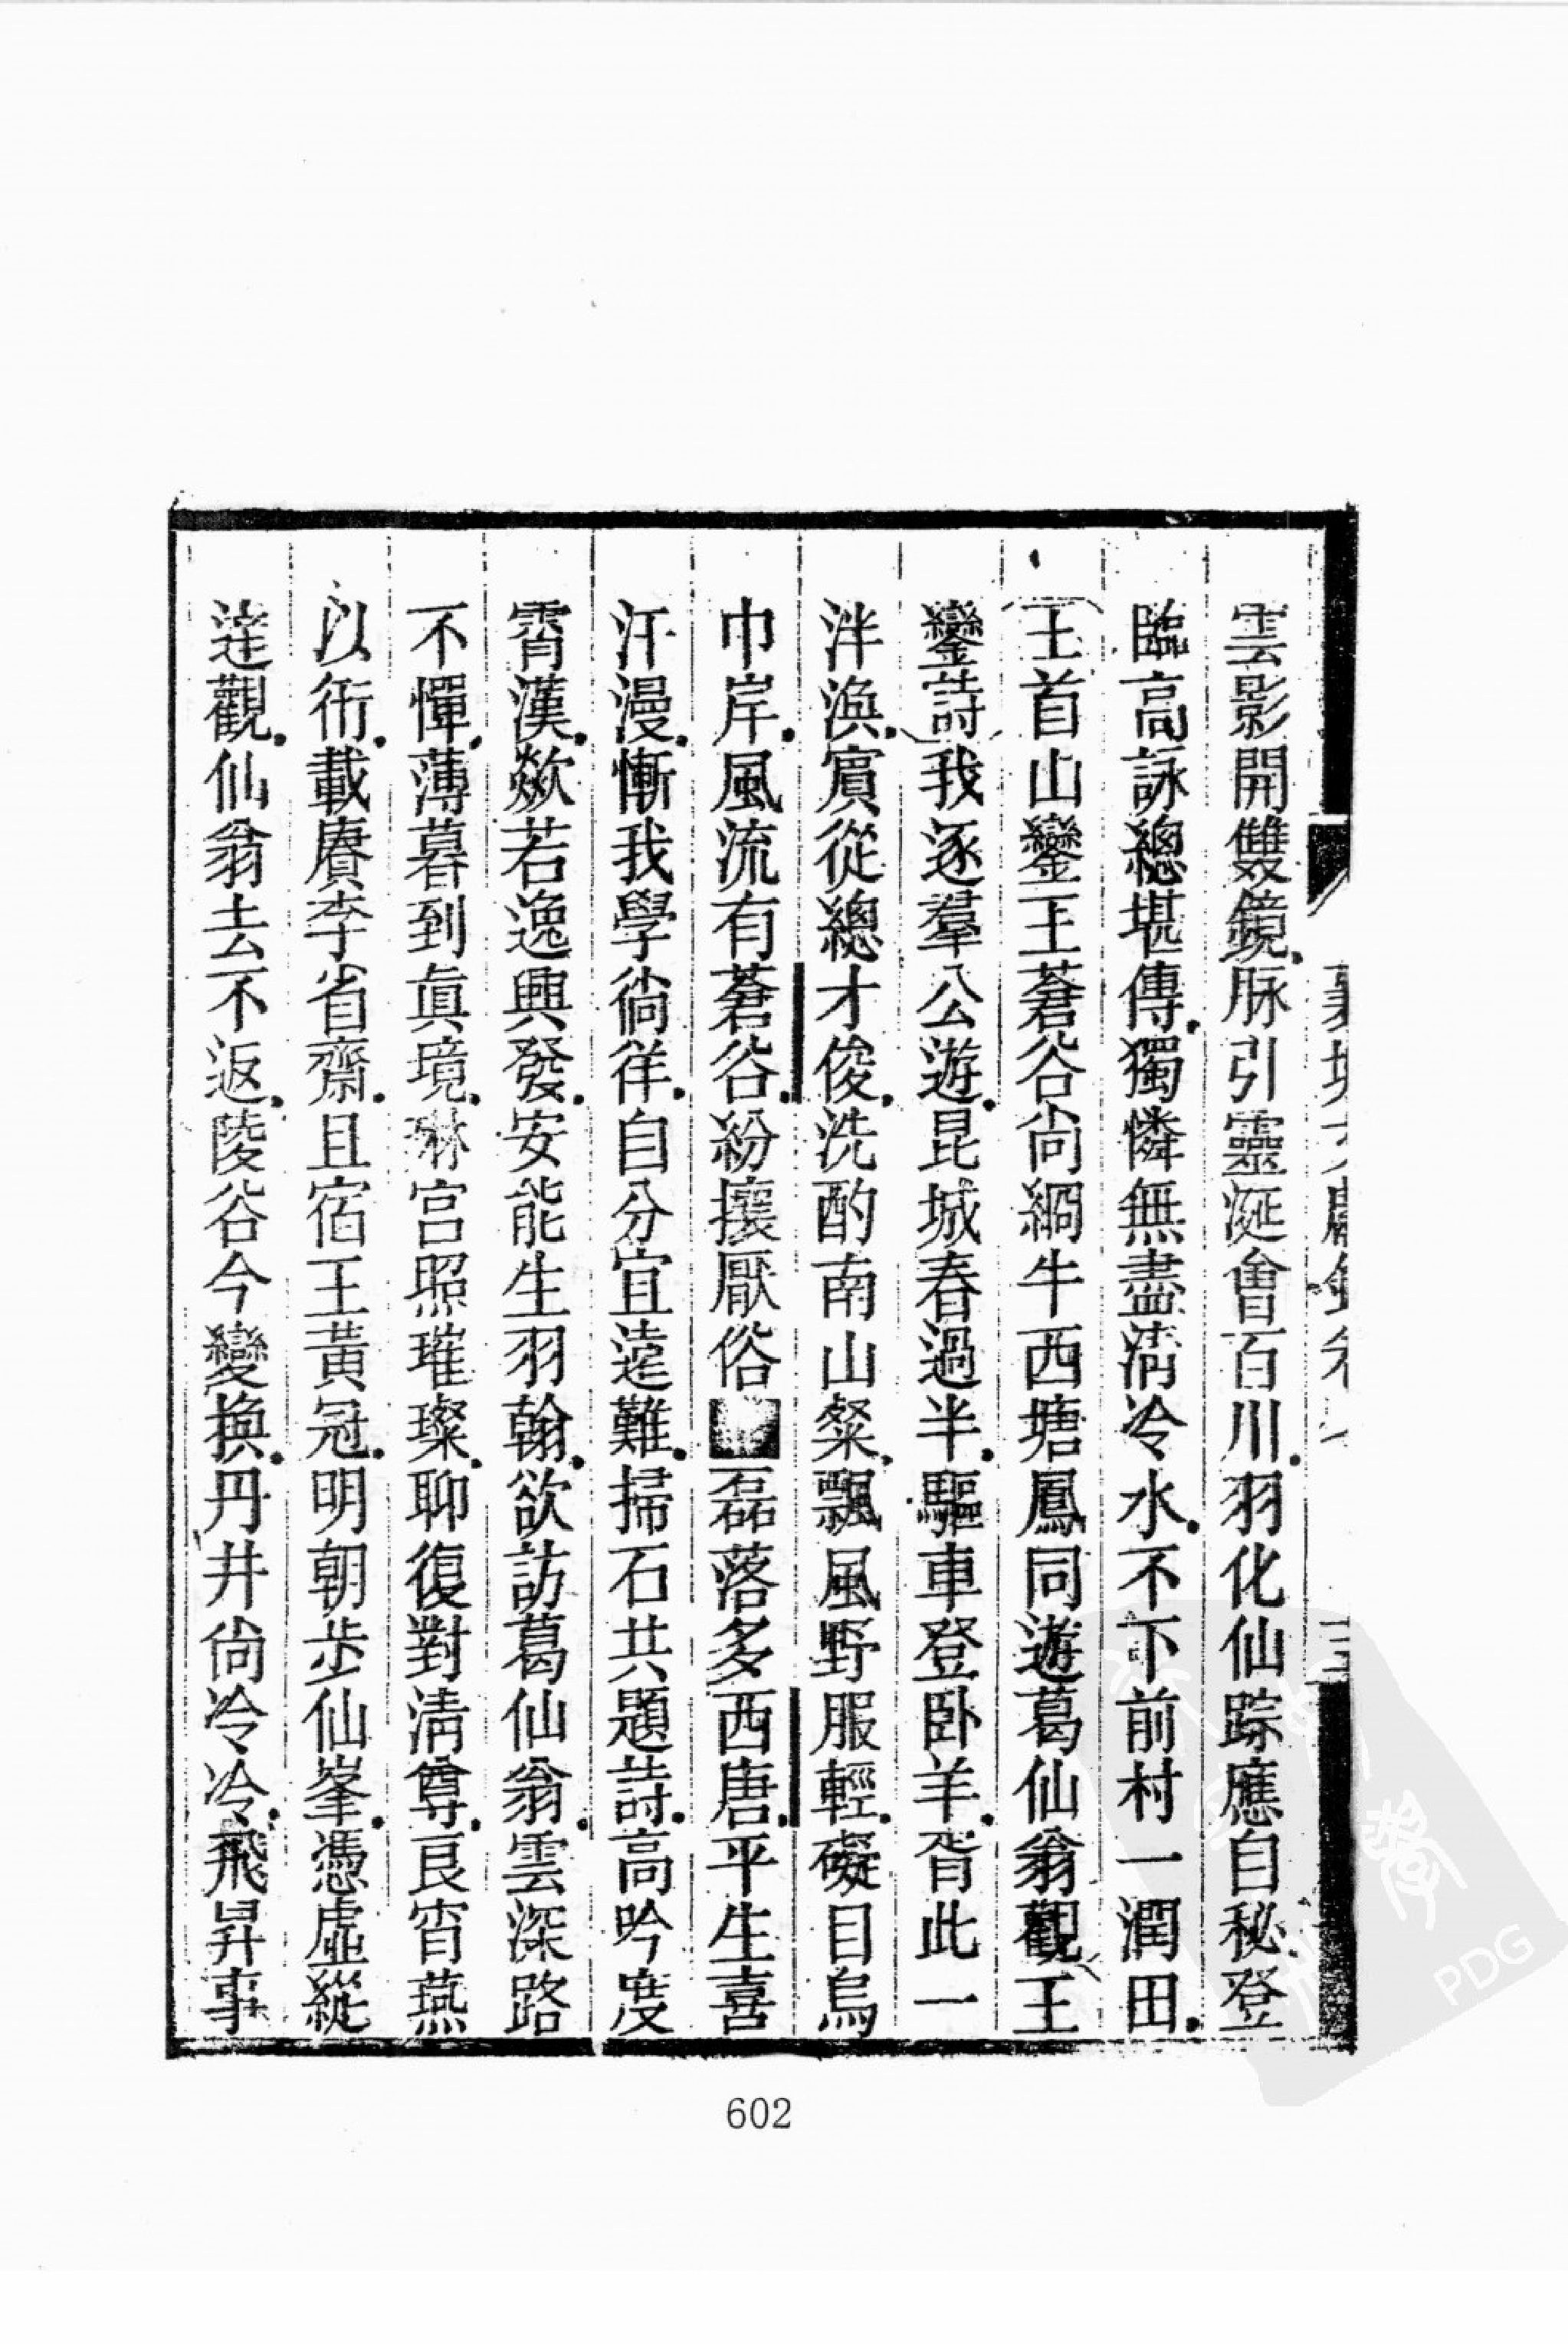 雲影開雙鏡脉引靈涎會百川羽化仙踪應自秘登
臨高詠總堪傳獨憐無盡淸冷水不下前村一潤田
王首山鑾王蒼谷尚絅牛西塘鳳同遊葛仙翁觀王
鑾詩我逐羣公遊昆城春過半驅車登卧羊胥此一
泮渙賓從總才俊洗酌南山粲飄風野服輕礙目烏
巾岸風流有蒼谷紛攘厭俗磊落多西唐平生喜
汗漫慚我學徜徉自分宜遠難掃石共題詩高吟度
霄漢歘若逸興發安能生羽翰欲訪葛仙翁雲深路
不憚薄暮到眞境琳宫照璀璨聊復對淸尊良宵燕
以衎載賡李省齋且宿王黃冠明朝步仙峯憑虛縱
逹觀仙翁去不返陵谷今變換丹井尚冷冷飛昇事
602
PDG